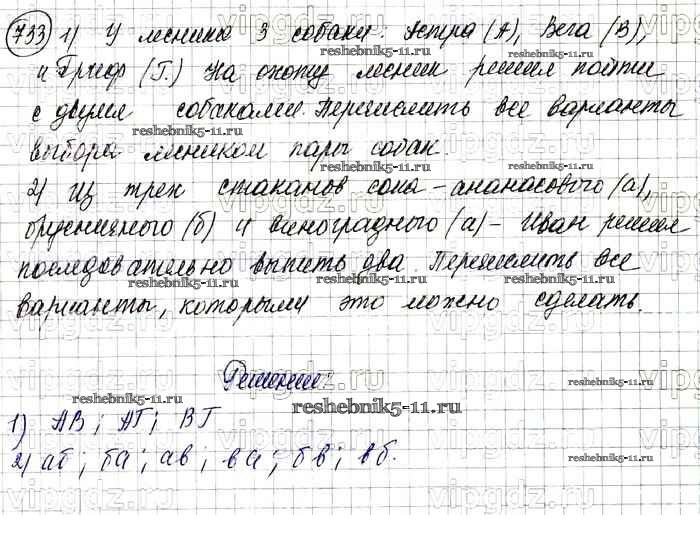 733 1) У лесника 3 собаки: Астра (А), Вега (В),
и Гриф (Г.) На охоту лесник решил пойти
с двумя собаками. Перечислить все варианты
выбора лесником пары собак.
2) Из трех стаканов сока – ананасового (а),
брусничного (б) и виноградного (а) – Иван решил
последовательно выпить два. Перечислить все
варианты, которыми это можно сделать.
Решение:
1) АВ; АГ; ВГ
2) аб; ба; ав; ва; бв; вб.
reshebnik5-11.ru
vipgdz.ru